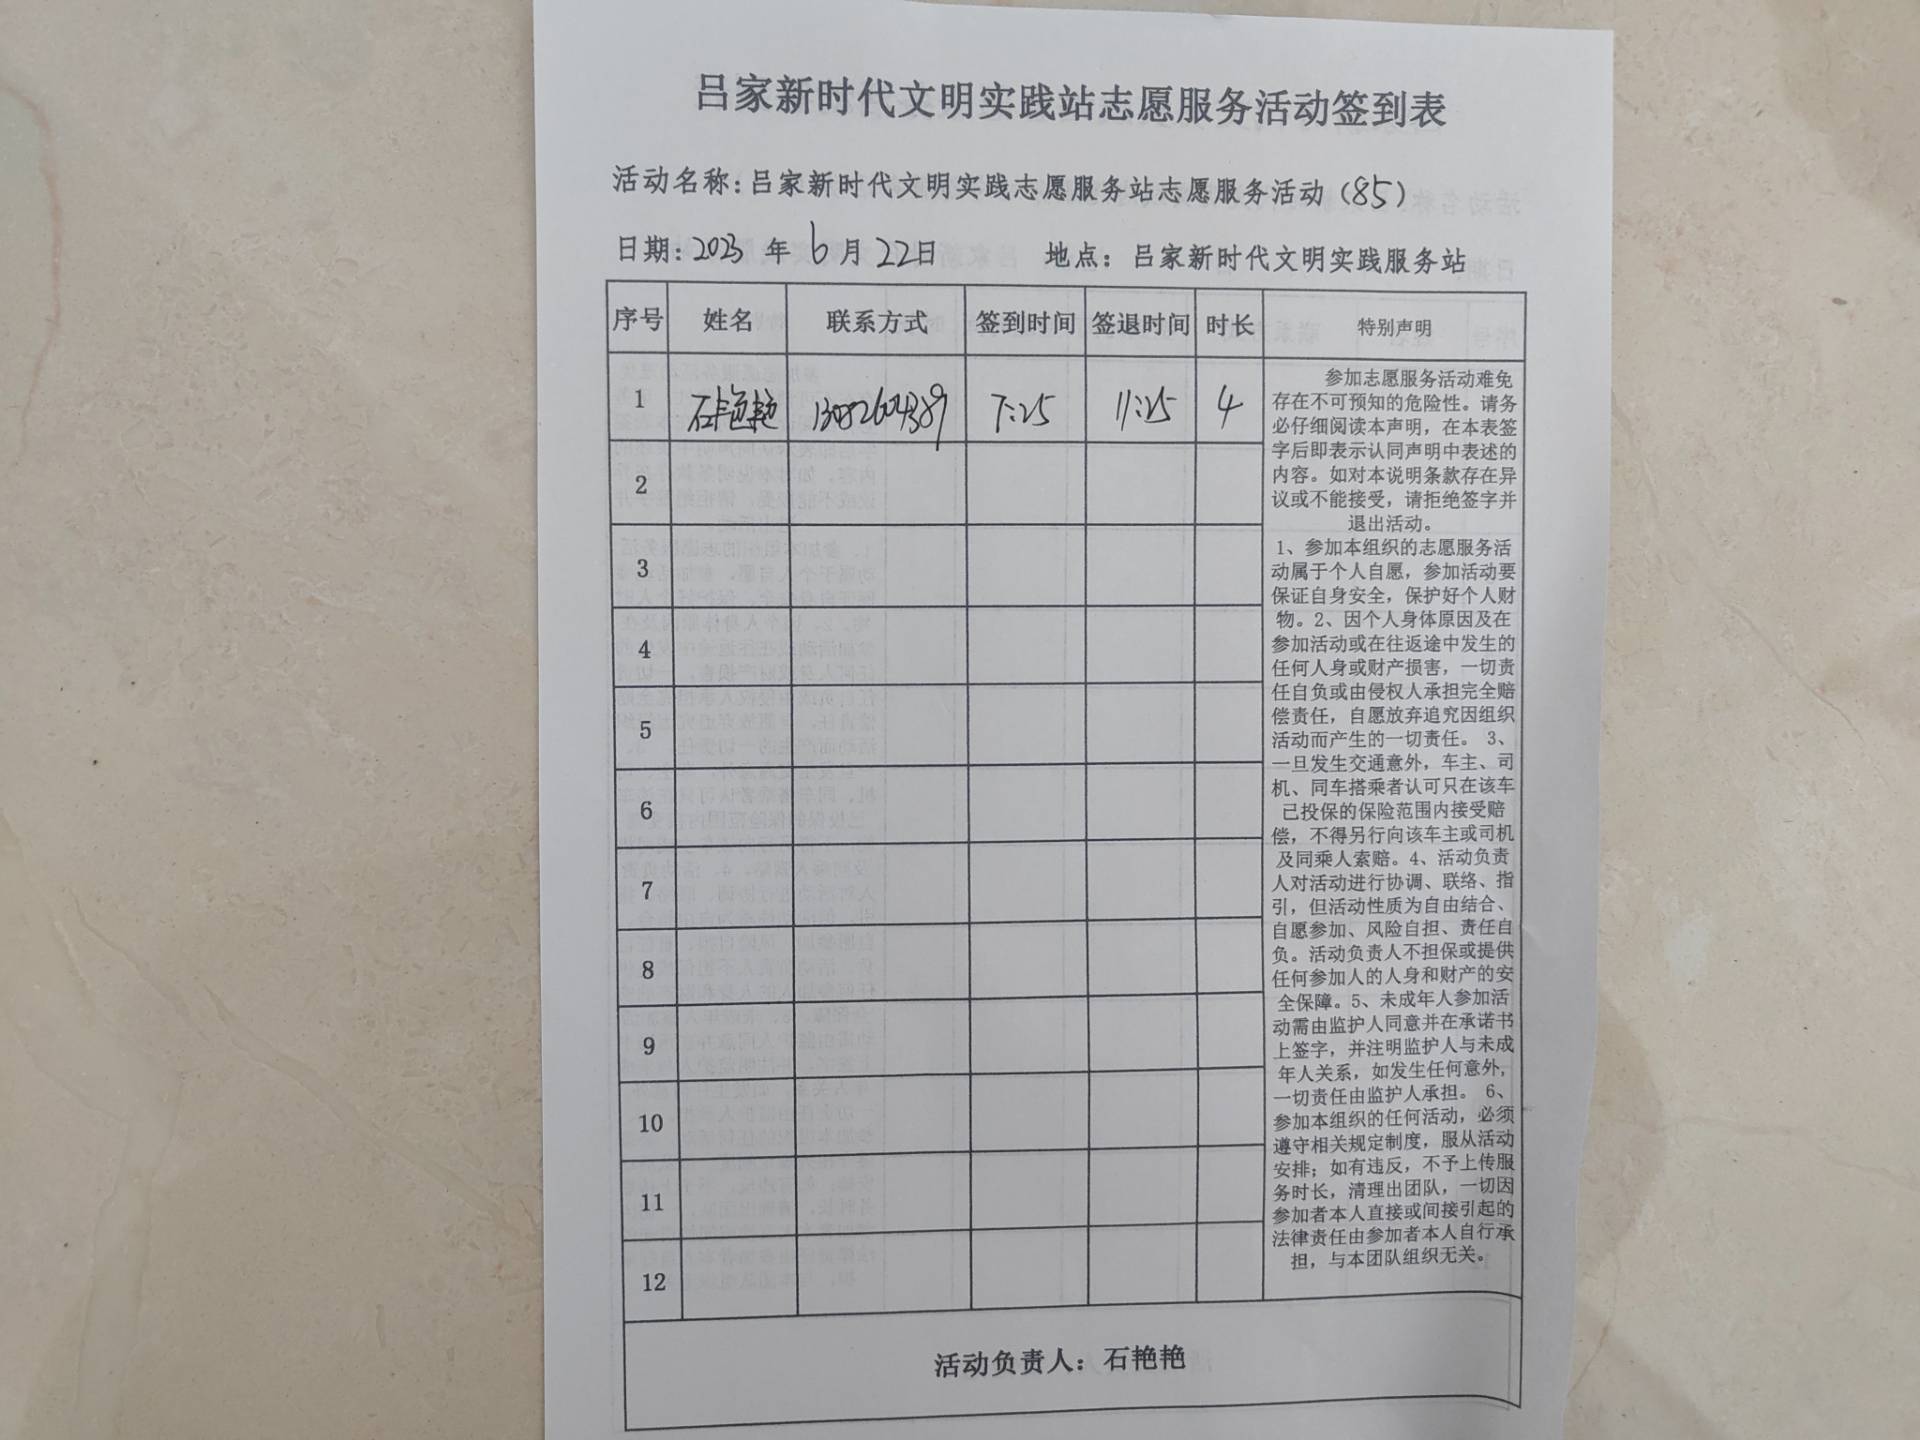 吕家新时代文明实践站志愿服务活动签到表
活动名称:吕家新时代文明实践志愿服务站志愿服务活动（85）
日期: 2023 年 6 月 22日 地点：吕家新时代文明实践服务站
序号 姓名 联系方式 签到时间 签退时间 时长 特别声明
1 石艳艳 13082604389 7:25 11:25 4
2
3
4
5
6
7
8
9
10
11
12
参加志愿服务活动难免
存在不可预知的危险性。请务
必仔细阅读本声明，在本表签
字后即表示认同声明中表述的
内容。如对本说明条款存在异
议或不能接受，请拒绝签字并
退出活动。
1、参加本组织的志愿服务活
动属于个人自愿，参加活动要
保证自身安全，保护好个人财
物。2、因个人身体原因及在
参加活动或在往返途中发生的
任何人身或财产损害，一切责
任自负或由侵权人承担完全赔
偿责任，自愿放弃追究因组织
活动而产生的一切责任。 3、
一旦发生交通意外，车主、司
机、同车搭乘者认可只在该车
已投保的保险范围内接受赔
偿，不得另行向该车主或司机
及同乘人索赔。4、活动负责
人对活动进行协调、联络、指
引，但活动性质为自由结合、
自愿参加、风险自担、责任自
负。活动负责人不担保或提供
任何参加人的人身和财产的安
全保障。5、未成年人参加活
动需由监护人同意并在承诺书
上签字，并注明监护人与未成
年人关系，如发生任何意外，
一切责任由监护人承担。 6、
参加本组织的任何活动，必须
遵守相关规定制度，服从活动
安排；如有违反，不予上传服
务时长，清理出团队，一切因
参加者本人直接或间接引起的
法律责任由参加者本人自行承
担，与本团队组织无关。
活动负责人：石艳艳